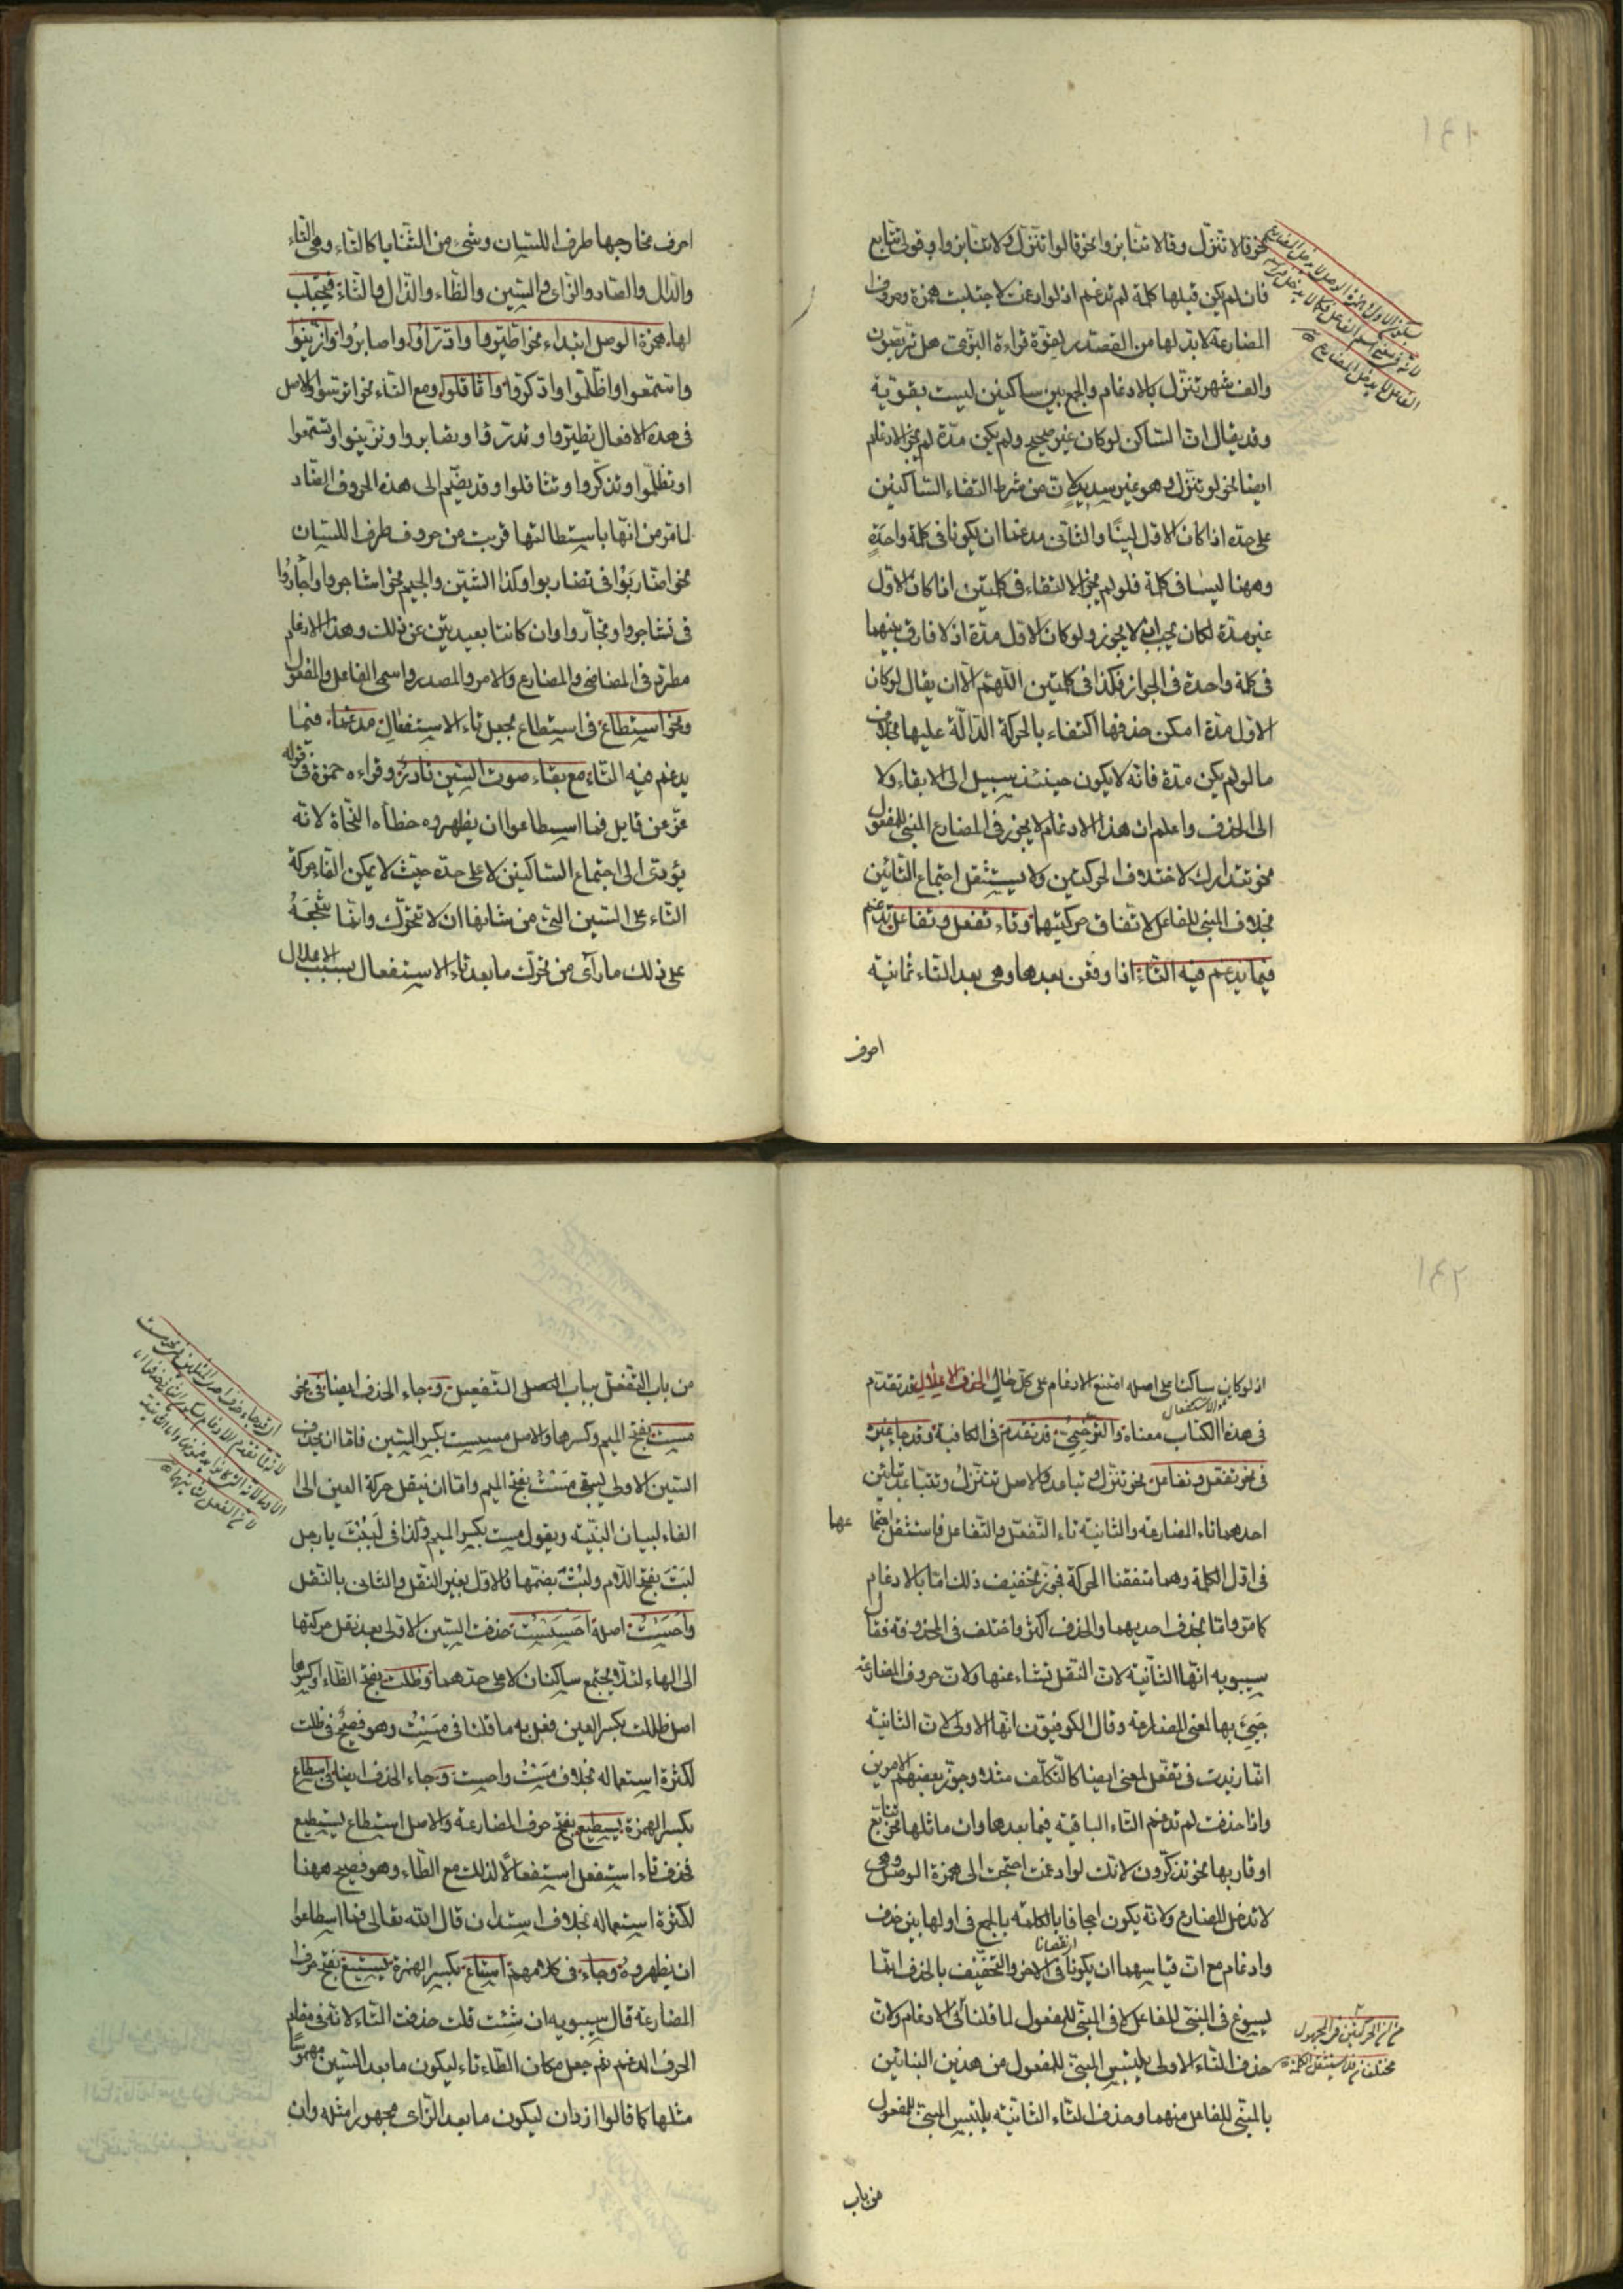 نحو قالا تنزل وقالا تنابزوا نحو قالوا تنزل ولا تنابزوا وقولى تتابع
فان لم يكن قبلها كلمة لم تدغم اذ لو ادغمت لاجتلبت همزة وحروف
المضارعة لا بد لها من التصدر لقوة قراءة البزى هل تربصون
والف شهر تنزل بالادغام والجمع بين ساكنين ليست بقوية
وقد يقال ان الساكن لو كان غير صحيح ولم يكن مدة لم يجز الادغام
ايضا نحو لو تنزل وهو غير سديد لان من شرط التقاء الساكنين
على حدة اذا كان الاول لينا والثانى مدغما ان يكونا فى كلمة واحدة
وههنا ليسا فى كلمة فلو لم يجز الالتقاء فى كلمتين اذا كان الاول
غير مدة لكان يجب ان لا يجوز ولو كان الاول مدة اذ لا فارق بينهما
فى كلمة واحدة فى الجواز فكذا فى كلمتين اللهم الا ان يقال لو كان
الاول مدة امكن حذفها اكتفاء بالحركة الدالة عليها بخلاف
ما لو لم يكن مدة فانه لا يكون حينئذ سبيل الى الابقاء ولا
الى الحذف واعلم ان هذا الادغام لا يجوز فى المضارع المبنى للمفعول
نحو تتدارك لاختلاف الحركتين ولا يستثقل اجتماع التائين
بخلاف المبنى للفاعل لاتفاق حركتيهما وتاء تفعل وتفاعل تدغم
فيما يدغم فيه التاء اذا وقعن بعدها وهى بعد التاء ثمانية
احرف
احرف مخارجها طرف اللسان وشئ من الثنايا كالتاء وهى الطاء
والدال والصاد والزاى والسين والظاء والذال والثاء فيجتلب
لها همزة الوصل ابتداء نحو اطيروا وادارأوا واصابروا وازينوا
واسمعوا واظلموا واذكروا واثاقلوا ومع التاء نحو اترسوا والاصل
فى هذه الافعال تطيروا وتدارؤا وتصابروا وتزينوا وتسمعوا
وتظلموا وتذكروا وتثاقلوا وقد يضم الى هذه الحروف الضاد
لما مر من انها باستطالتها قربت من حروف طرف اللسان
نحو اضاربوا فى تضاربوا وكذا الشين والجيم نحو اشاجروا واجاروا
فى تشاجروا وتجاروا وان كانتا بعيدتين عن ذلك وهذا الادغام
مطرد فى الماضى والمضارع والامر والمصدر واسمى الفاعل والمفعول
ونحو اسطاع فى استطاع بجعل تاء الاستفعال مدغما فيما
يدغم فيه التاء مع بقاء صوت السين نادر وقراءه حمزة فى قوله
عز من قايل فما اسطاعوا ان يظهروه خطأه النحاة لانه
يؤدى الى اجتماع الساكنين لا على حدة حيث لا يمكن القاء حركة
التاء على السين التى من شانها ان لا تتحرك وانما شجعه
على ذلك ما رآى من تحرك ما بعد تاء الاستفعال بسبب الاعلال
اذ لو كان ساكنا على اصله امتنع الادغام على كل حال الحذف الاعلالى قد تقدم
فى هذا الكتاب معناه والترخيمى قد تقدم فى الكافية وقد جاء غيره
فى نحو تفعل وتفاعل نحو تنزل وتباعد والاصل تتنزل وتتباعد بتائين
احدهما تاء المضارعه والثانية تاء التفعل والتفاعل فاستثقل اجتماعهما
فى اول الكلمة وهما متفقتا الحركة فجوز تخفيف ذلك اما بالادغام
كما مر واما بحذف احديهما والحذف اكثر واختلف فى المحذوفة فقال
سيبويه انها الثانية لان الثقل نشاء عنها ولان حروف المضارعة
جيئ بها لمعنى المضارعة وقال الكوفيون انها الاولى لان الثانية
انما زيدت فى تفعل لمعنى ايضا كالتكلف مثلا وجوز بعضهم الامرين
واذا حذفت لم تدغم التاء الباقية فيما بعدها وان ماثلها نحو تتابع
او قاربها نحو تذكرون لانك لو ادغمت احتجت الى همزة الوصل وهى
لا تدخل المضارع ولانه يكون اجحافا بالكلمة بالجمع فى اولها بين حذف
وادغام مع ان قياسهما ان يكونا فى الاخر والتخفيف بالحذف انما
يسوغ فى المبنى للفاعل لا فى المبنى للمفعول لما قلنا فى الادغام ولان
حذف التاء الاولى يلبس المبنى للمفعول من هذين البنائين
بالمبنى للفاعل منهما وحذف التاء الثانية يلبس المبنى للمفعول
من باب
من باب التفعل بباب التفعيل وجاء الحذف ايضا فى نحو
مست بفتح الميم وكسرها والاصل مسست بكسر السين فاما ان يحذف
السين الاولى ليبقى مست بفتح الميم واما ان ينقل حركة العين الى
الفاء لبيان البنية ويقول مست بكسر الميم وكذا فى لببت يا رجل
لبت بفتح اللام ولبت بضمها فالاول بغير النقل والثانى بالنقل
واحست اصله احسست حذفت السين الاولى بعد نقل حركتها
الى الحاء لئلا يجتمع ساكنان لا على حدهما وظلت بفتح الظاء وكسرها
اصل ظللت بكسر العين فعل به ما قلنا فى مست وهو فصيح فى ظلت
لكثرة استعماله بخلاف مست واحست وجاء الحذف ايضا فى اسطاع
بكسر الهمزة يسطيع بفتح حرف المضارعة والاصل استطاع يستطيع
فحذف تاء استفعل استثقالا لذلك مع الطاء وهو فصيح ههنا
لكثرة استعماله بخلاف استدان قال الله تعالى فما اسطاعوا
ان يظهروه وجاء فى كلامهم استاع بكسر الهمزة يستيع بفتح حرف
المضارعة قال سيبويه ان شئت قلت حذفت التاء لانه فى مقام
الحرف المدغم ثم جعل مكان الطاء تاء ليكون ما بعد السين مهموسا
مثلها كما قالوا ازدان ليكون ما بعد الزاى مجهورا مثله وان